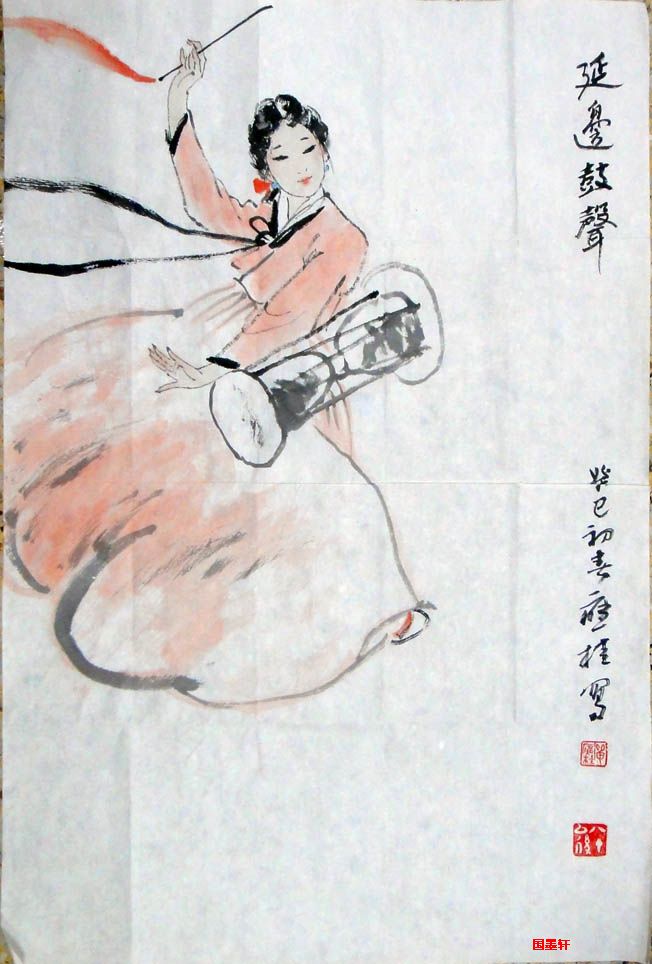 延邊鼓聲
癸巳初春應桂寫
国墨轩